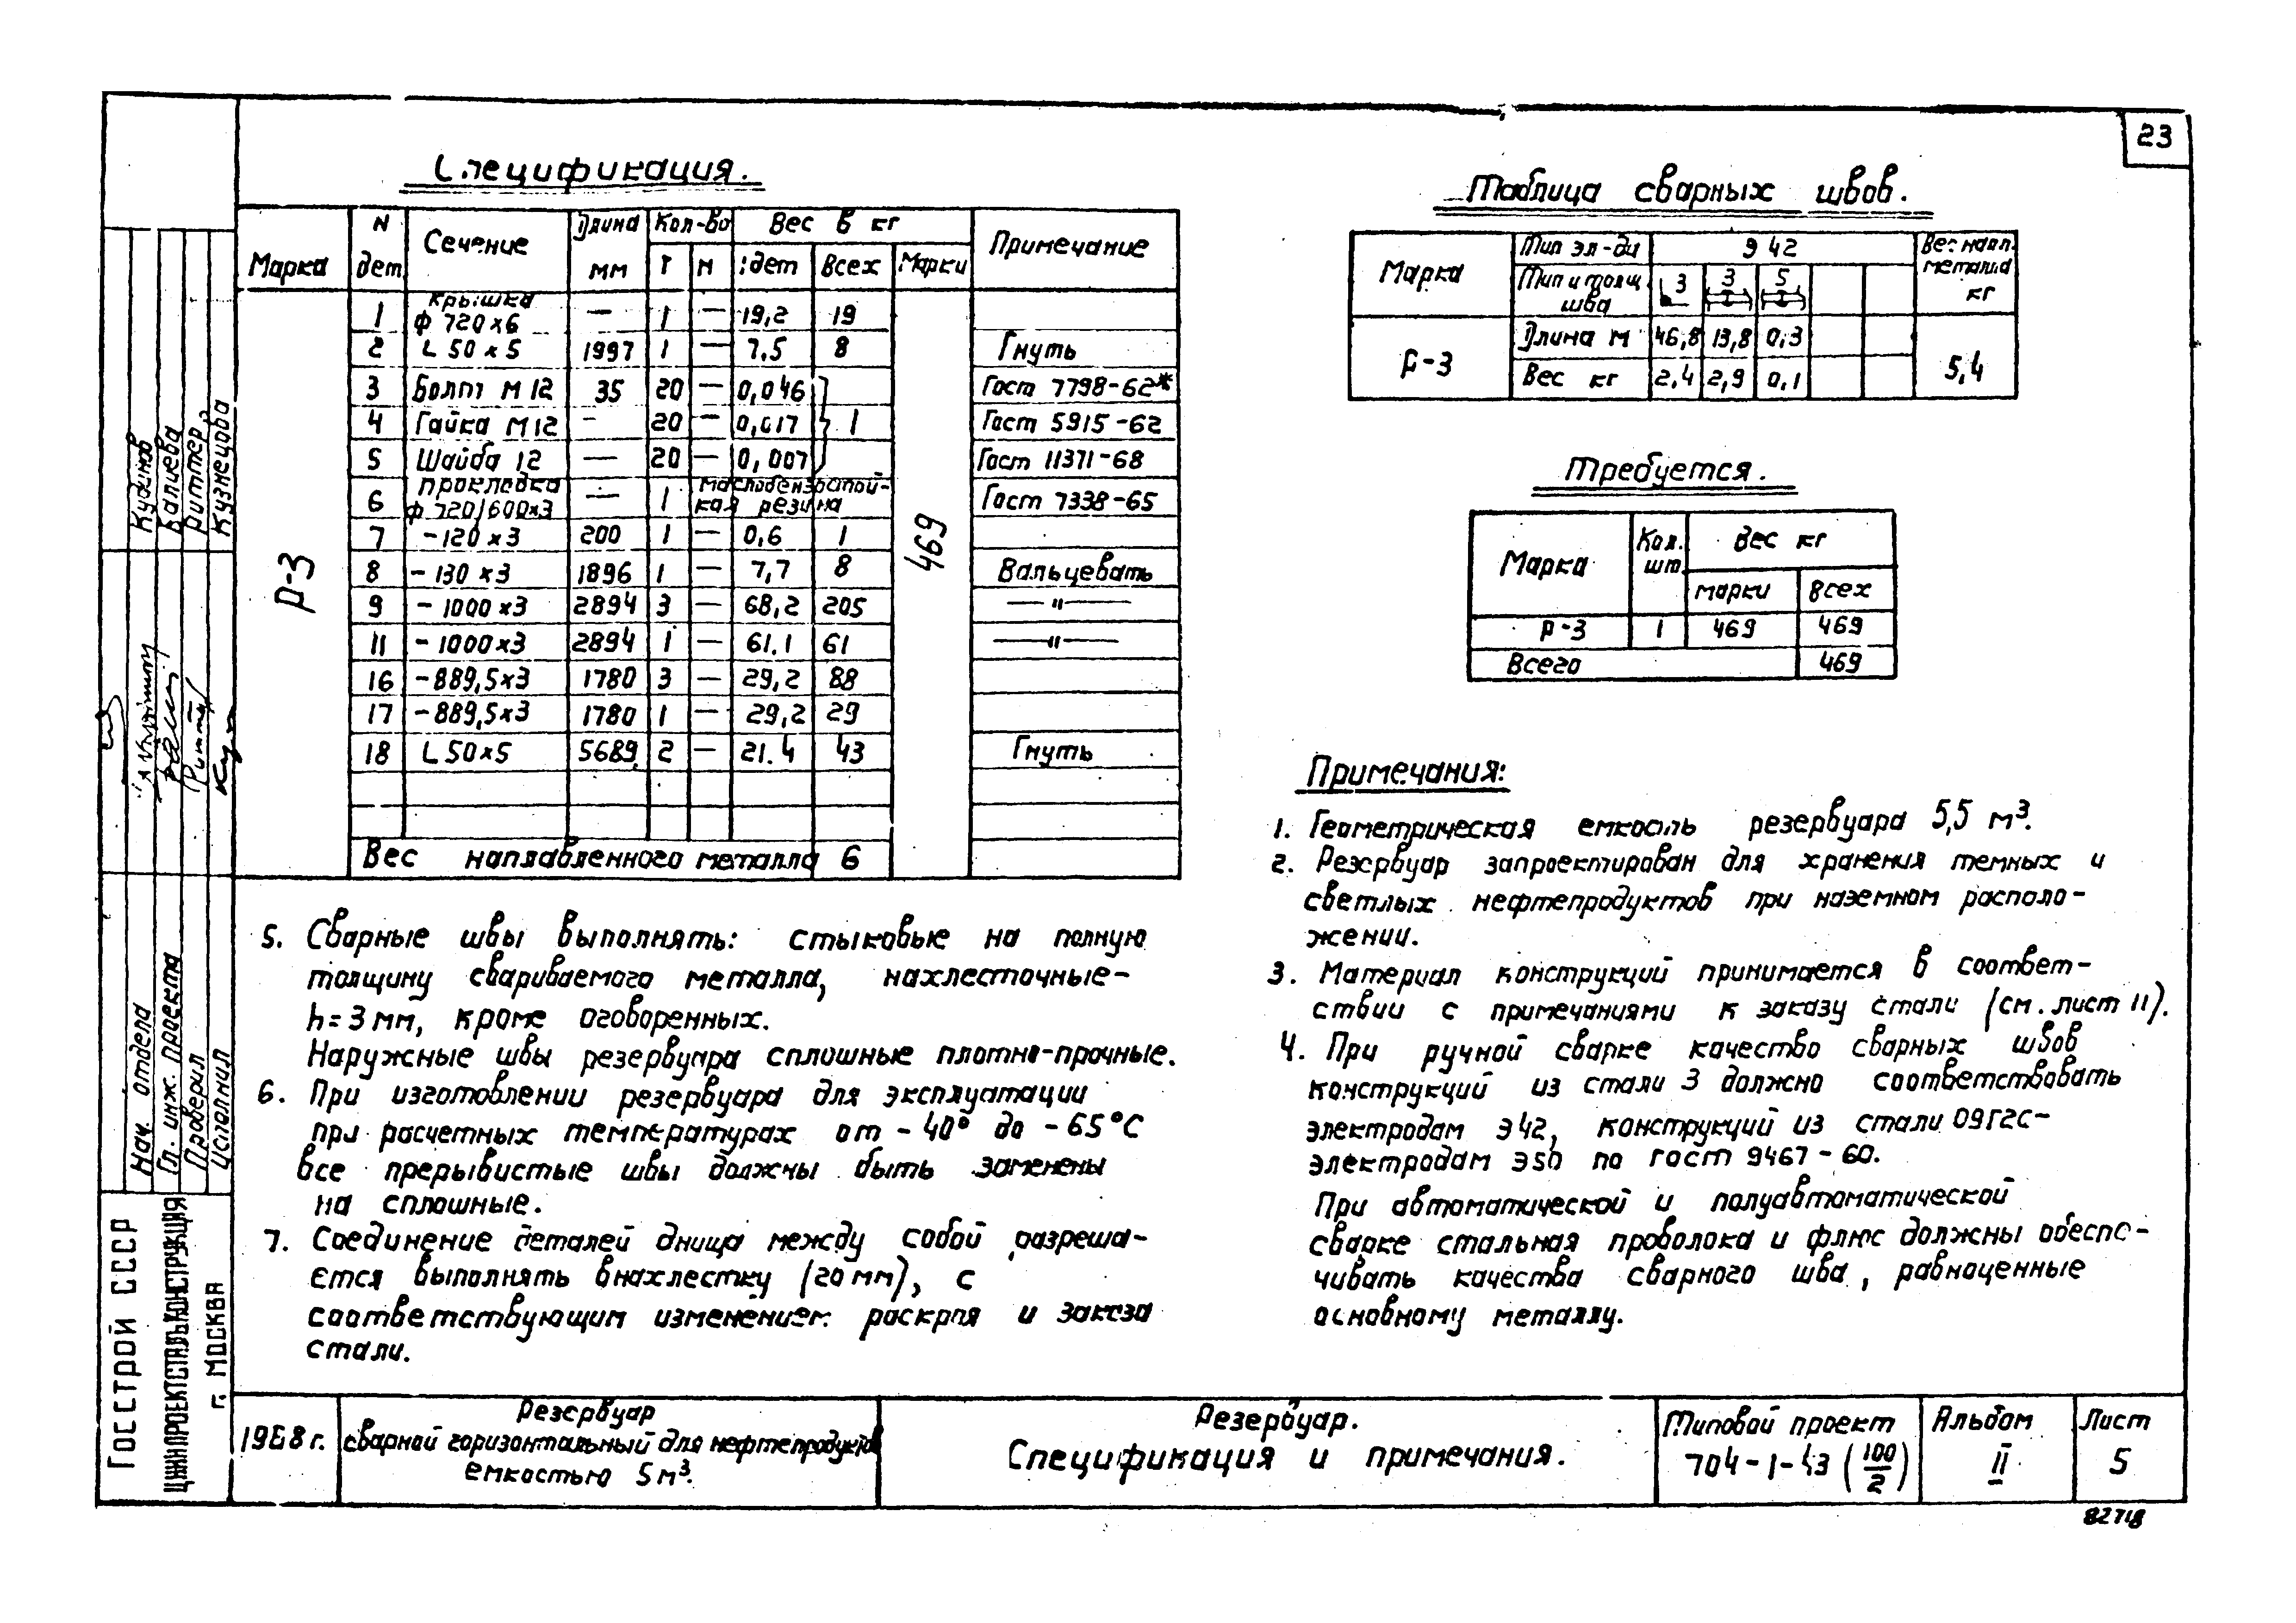 23
Спецификация.
Марка | N дет. | Сечение | Длина мм | Кол-во Т Н | Вес в кг 1 дет Всех Марки | Примечание
Р-3 | 469
1 | Крышка ф 720×6 | — | 1 | — | 19,2 | 19
2 | L 50×5 | 1997 | 1 | — | 7.5 | 8 | Гнуть
3 | Болт М12 | 35 | 20 | — | 0,046 | Гост 7798-62*
4 | Гайка М12 | — | 20 | — | 0,017 | 1 | Гост 5915-62
5 | Шайба 12 | — | 20 | — | 0,007 | Гост 11371-68
6 | Прокладка ф 720/600×3 | — | 1 | маслобензостой-кая резина | Гост 7338-65
7 | -120×3 | 200 | 1 | — | 0,6 | 1
8 | -130×3 | 1896 | 1 | — | 7,7 | 8 | Вальцевать
9 | -1000×3 | 2894 | 3 | — | 68,2 | 205 | —"—
11 | -1000×3 | 2894 | 1 | — | 61.1 | 61 | —"—
16 | -889,5×3 | 1780 | 3 | — | 29,2 | 88
17 | -889,5×3 | 1780 | 1 | — | 29,2 | 29
18 | L 50×5 | 5689 | 2 | — | 21.4 | 43 | Гнуть
Вес наплавленного металла 6
Таблица сварных швов.
Марка | Тип эл-да | Э 42 | Вес напл. металла кг
Тип и толщ. шва | 3 | 3 | 5
Р-3 | Длина м | 46,8 | 13,8 | 0,3 | 5,4
Вес кг | 2,4 | 2,9 | 0,1
Требуется.
Марка | Кол. шт. | Вес кг
марки | всех
Р-3 | 1 | 469 | 469
Всего | 469
Примечания:
1. Геометрическая емкость резервуара 5,5 м³.
2. Резервуар запроектирован для хранения темных и
светлых нефтепродуктов при наземном располо-
жении.
3. Материал конструкций принимается в соответ-
ствии с примечаниями к заказу стали (см. лист 11).
4. При ручной сварке качество сварных швов
конструкций из стали 3 должно соответствовать
электродам Э42, конструкций из стали 09Г2С-
электродам Э50 по гост 9467-60.
При автоматической и полуавтоматической
сварке стальная проволока и флюс должны обеспе-
чивать качества сварного шва, равноценные
основному металлу.
5. Сварные швы выполнять: стыковые на полную
толщину свариваемого металла, нахлесточные-
h=3мм, кроме оговоренных.
Наружные швы резервуара сплошные плотно-прочные.
6. При изготовлении резервуара для эксплуатации
при расчетных температурах от -40° до -65°С
все прерывистые швы должны быть заменены
на сплошные.
7. Соединение деталей днища между собой разреша-
ется выполнять внахлестку (20мм), с
соответствующим изменением раскроя и заказа
стали.
Нач. отдела Кудинов
Гл. инж. проекта
Проверил Риттер
Исполнил Кузнецова
ГОССТРОЙ СССР
ЦНИИПРОЕКТСТАЛЬКОНСТРУКЦИЯ
г. МОСКВА
1968 г.
Резервуар
сварной горизонтальный для нефтепродуктов
емкостью 5м³.
Резервуар.
Спецификация и примечания.
Типовой проект
704-1-43 (100/2)
Альбом
II
Лист
5
82718